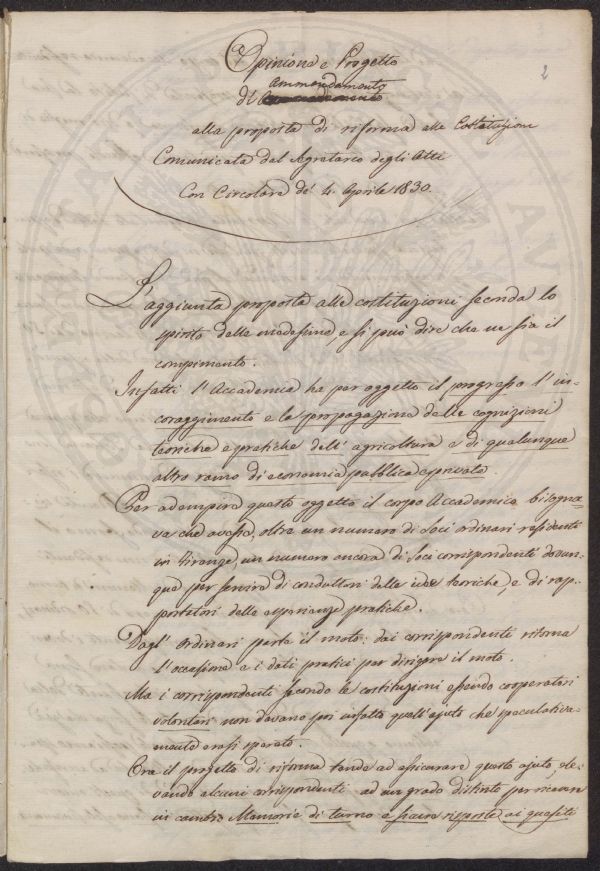 2
Opinione e Progetto
ammendamento
di
alla proposta di riforma alle Costituzioni
Comunicata dal Segretario degli Atti
Con Circolare de' 4. Aprile 1830.
L'aggiunta proposta alle costituzioni seconda lo
spirito delle medesime, e si può dire che ne sia il
compimento.
Infatti l'Accademia ha per oggetto il progresso l'in-
coraggimento e la propagazione delle cognizioni
teoriche e pratiche dell'agricoltura e di qualunque
altro ramo di economia pubblica e privata.
Per adempire questo oggetto il corpo Accademico bisogna-
va che avesse, oltre un numero di Soci ordinari residenti
in Firenze, un numero ancora di Soci corrispondenti dovun-
que per servire di conduttori delle idee teoriche, e di rap-
portatori delle esperienze pratiche.
Dagl'ordinari parte il moto: dai corrispondenti ritorna
l'occasione e i dati pratici per dirigere il moto.
Ma i corrispondenti secondo le costituzioni essendo cooperatori
volontari non davano poi infatto quell'ajuto che speculativa-
mente erasi sperato.
Ora il progetto di riforma tende ad assicurare questo ajuto, ele-
vando alcuni corrispondenti ad un grado distinto per ricevere
in cambio Memorie di turno e sicure risposte ai quesiti